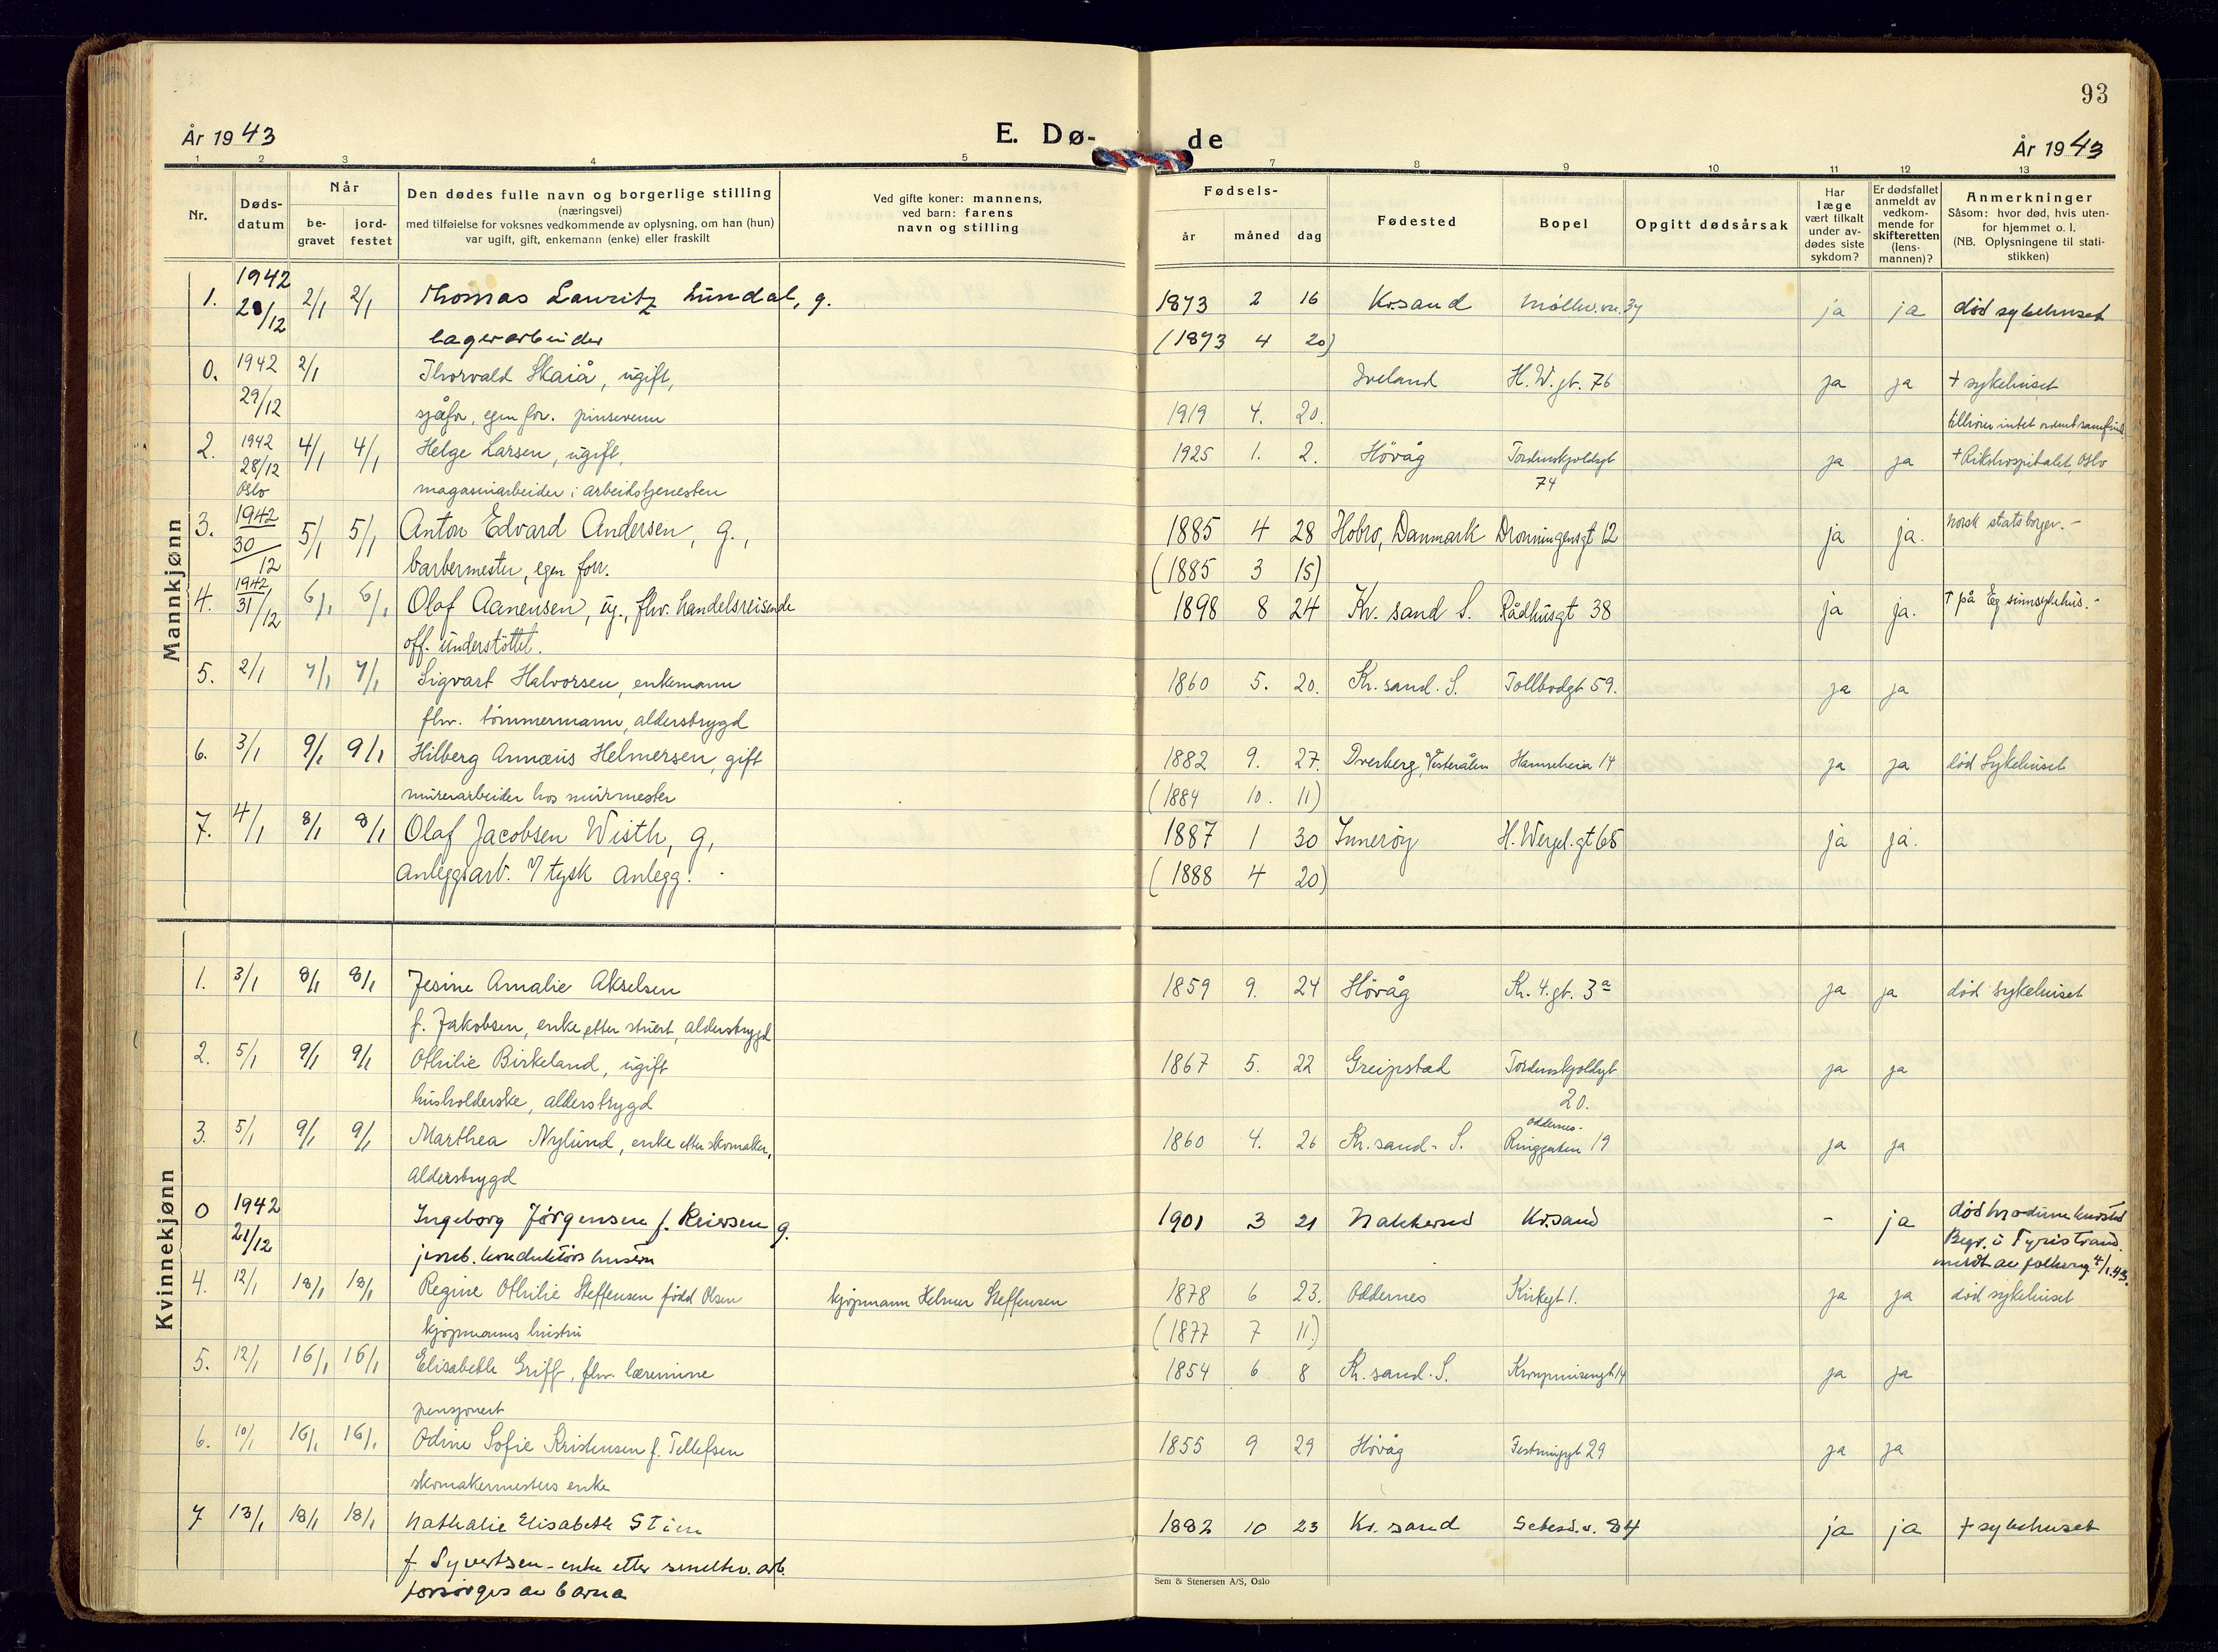 93
År 1943
E. Dø-
de
År 1943
1 2 3 4 5 7 8 9 10 11 12 13
Nr.
Døds-
datum
Når
be-
gravet
jord-
festet
Den dødes fulle navn og borgerlige stilling
(næringsvei)
med tilføielse for voksnes vedkommende av oplysning, om han (hun)
var ugift, gift, enkemann (enke) eller fraskilt
Ved gifte koner: mannens,
ved barn: farens
navn og stilling
Fødsels-
år måned dag
Fødested
Bopel
Opgitt dødsårsak
Har
læge
vært tilkalt
under av-
dødes siste
sykdom?
Er dødsfallet
anmeldt av
vedkom-
mende for
skifteretten
(lens-
mannen)?
Anmerkninger
Såsom: hvor død, hvis uten-
for hjemmet o. l.
(NB. Oplysningene til stati-
stikken)
Mannkjønn
1. 1942 28/12 2/1 2/1 Thomas Lauritz Lundal, g. 1873 2 16 Kr.sand Møllev. 37 ja ja død sykehuset
lagerarbeider (1873 4 20)
0. 1942 29/12 2/1 Thorvald Skaiå, ugift, Iveland H.W.gt. 76 ja ja + sykehuset
sjåfør, egen for. pinsevenn 1919 4. 20. tilhører intet ordnet samfund
2. 1942 28/12 Oslo 4/1 4/1 Helge Larsen, ugift, 1925 1. 2. Hövåg Tordenskjoldsgt 74 ja ja + Rikshospitalet, Oslo
magasinarbeider i arbeidstjenesten
3. 1942 30/12 5/1 5/1 Anton Edvard Andersen, g., 1885 4 28 Hobro, Danmark Dronningensgt 12 ja ja. Norsk statsborger.-
barbermester, egen forr. (1885 3 15)
4. 1942 31/12 6/1 6/1 Olaf Aanensen, ug., fhv. handelsreisende 1898 8 24 Kr. sand S. Rådhusgt 38 ja ja. + på Eg sinnsykehus.-
off. understöttet.
5. 2/1 7/1 7/1 Sigvart Halvorsen, enkemann 1860 5. 20. Kr. sand. S. Tollbodgt 59. ja ja
fhv. tömmermann, alderstrygd
6. 3/1 9/1 9/1 Hilberg Annæus Helmersen, gift 1882 9. 27. Dverberg, Vesterålen Hannevika 14 ja ja död Sykehuset
murerarbeider hos murmester (1884 10. 11)
7. 4/1 8/1 8/1 Olaf Jacobsen Wisth, g, 1887 1 30 Innerøy H. Wergel.gt 65 ja ja.
Anleggsarb. v/ tysk anlegg. (1888 4 20)
Kvinnekjønn
1. 3/1 8/1 8/1 Jesine Amalie Akselsen 1859 9. 24 Hövåg Kr. 4. gt. 3a ja ja död sykehuset
f. Jakobsen, enke etter stuert, alderstrygd
2. 5/1 9/1 9/1 Othilie Birkeland, ugift 1867 5. 22 Greipstad Tordenskjoldsgt 20. ja ja
husholderske, alderstrygd
3. 5/1 9/1 9/1 Marthea Nylund, enke etter skomaker, 1860 4. 26 Kr. sand. S. Oddernes- Ringgaten 19 ja ja
alderstrygd
0 1942 21/12 Ingeborg Jørgensen f. Reiersen g. 1901 3 21 Nakkerud Kr.sand - ja
jernb. konduktørs hustru Begr. i Tyristrand
4/1.43.
4. 12/1 18/1 18/1 Regine Othilie Steffensen född Olsen kjøpmann Helmer Steffensen 1878 6 23. Oddernes Kirkegt 1. ja ja död sykehuset
kjøpmanns hustru (1877 7 11.)
5. 12/1 16/1 16/1 Elisabeth Griff, fhv. lærerinne 1854 6 8 Kr. sand. S. Kronprinsensgt 14 ja ja
pensjonert
6. 10/1 16/1 16/1 Odine Sofie Kristensen f. Tellefsen 1855 9 29 Hövåg Festningsgt 29 ja ja
skomakermesters enke
7 13/1 18/1 18/1 Nathalie Elisabeth Stien 1882 10 23 Kr. sand Setesd.v. 84 ja ja + sykehuset
f. Syvertsen - enke etter smeltev. arb.
forsørges av barna
Sem & Stenersen A/S, Oslo